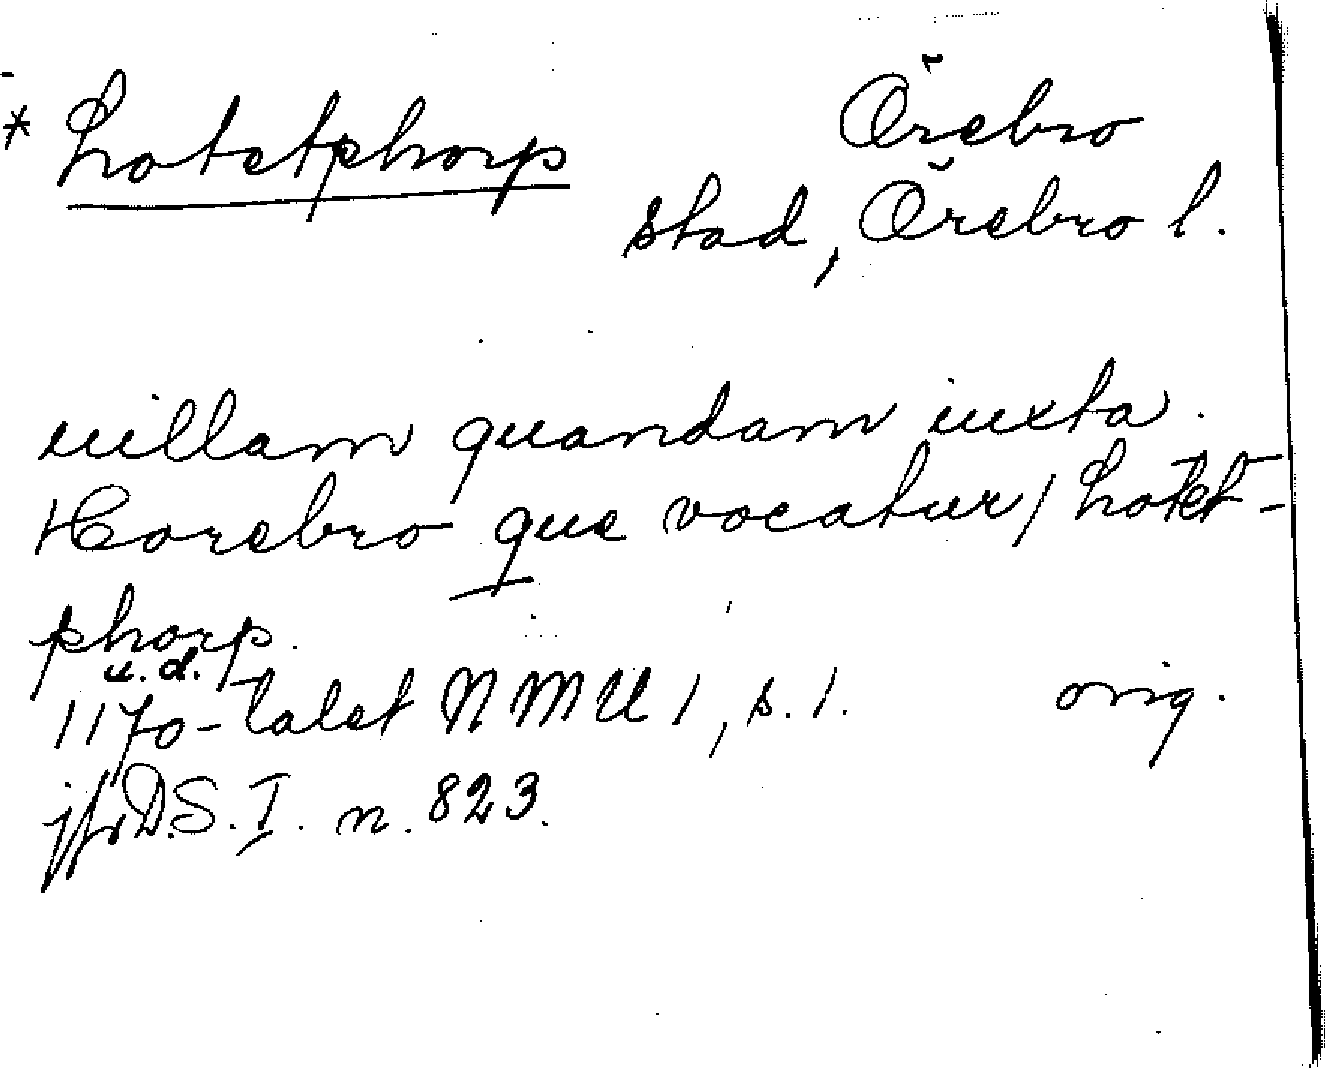 * Lotetphorp
Örebro
stad, Örebro l.
uillam quandam iuxta
Horebro que vocatur / Lotet-
phorp.
u.d.
1170-talet NMU 1, s. 1. orig.
jfr D.S. I. n. 823.